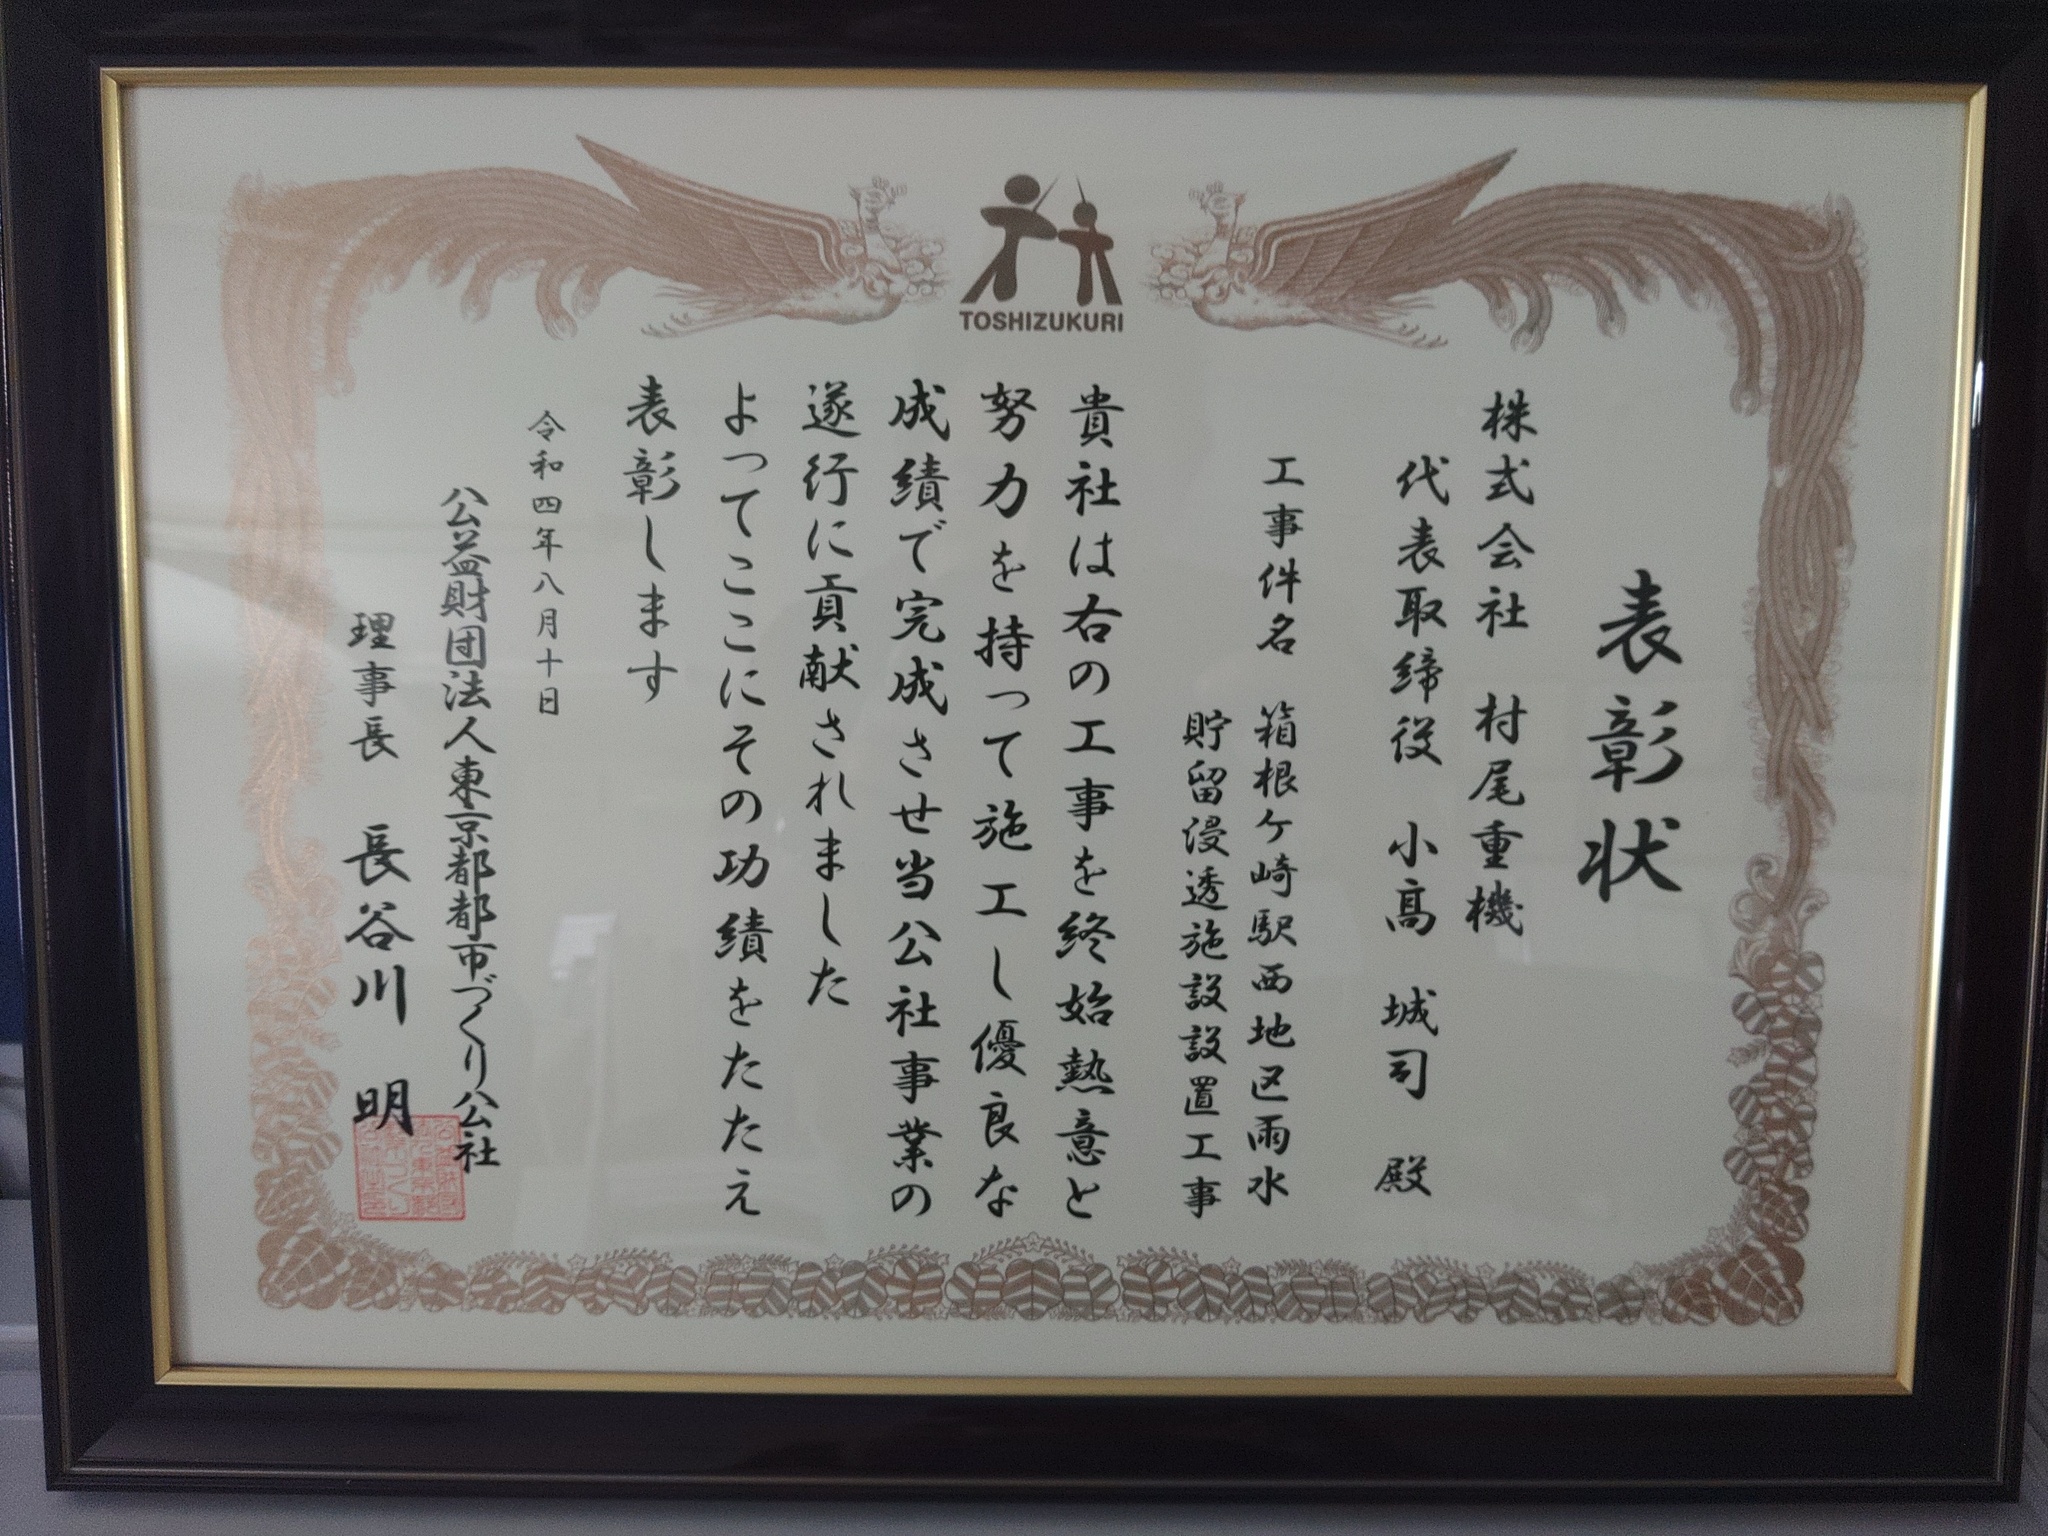 TOSHIZUKURI
表彰状
株式会社 村尾重機
代表取締役 小髙 城司 殿
工事件名 箱根ケ崎駅西地区雨水
貯留浸透施設設置工事
貴社は右の工事を終始熱意と
努力を持って施工し優良な
成績で完成させ当公社事業の
遂行に貢献されました
よってここにその功績をたたえ
表彰します
令和四年八月十日
公益財団法人東京都都市づくり公社
理事長 長谷川 明